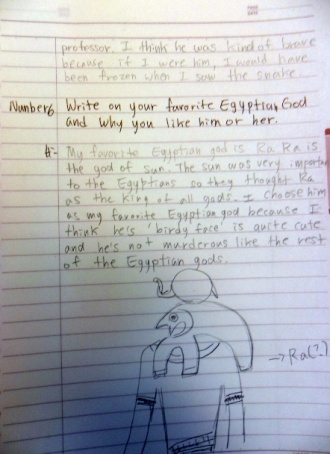 professor. I think he was kind of brave
because if I were him, I would have
been frozen when I saw the snake.
Number6 Write on your favorite Egyptian God
and Why you like him or her.
A- My favorite Egyptian god is Ra Ra is
the god of sun. The sun was very importa
to the Egyptians so they thought Ra
as the King of all gods. I choose him
as my favorite Egyptian god because I
think he's 'birdy face' is quite cute
and he's not murderous like the rest
of the Egyptian gods.
→ Ra(?)